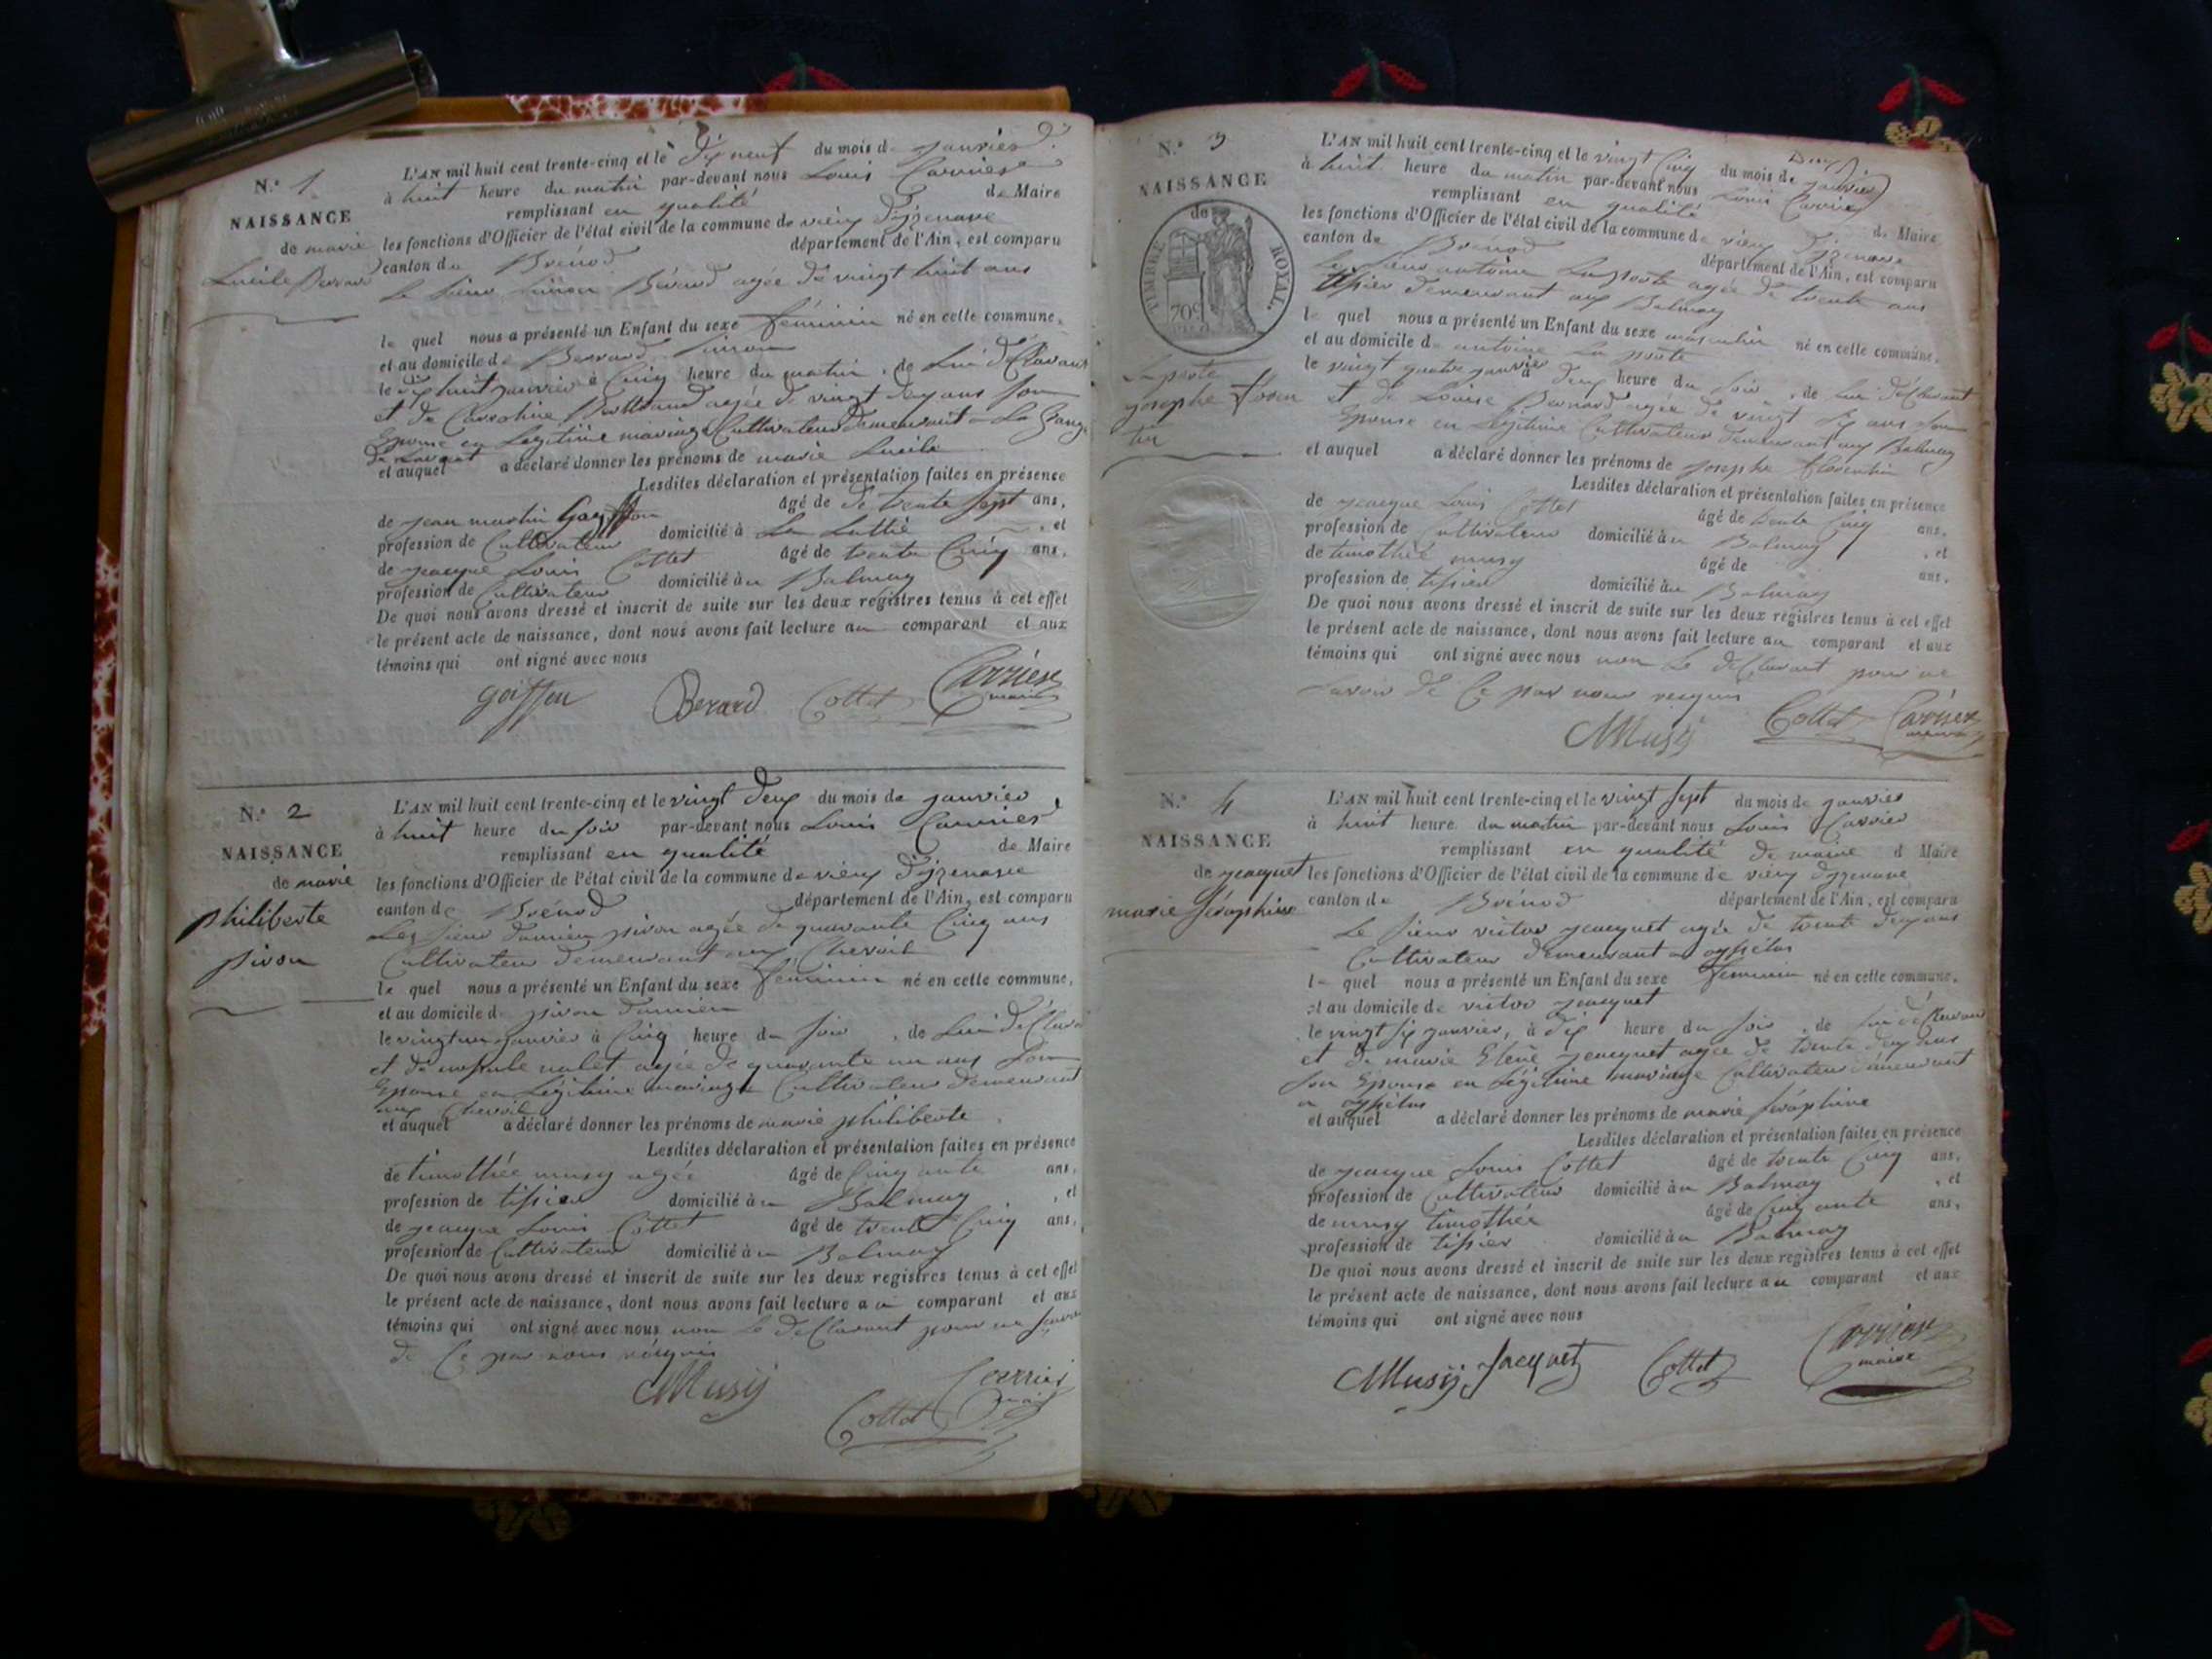 N.º 1
NAISSANCE
de marie
Lucile Berard
L'AN mil huit cent trente-cinq et le dix neuf du mois de janvier
à huit heure du matin par-devant nous Louis Carrier
remplissant en qualité de Maire
les fonctions d'Officier de l'état civil de la commune de vieux d'izenave
canton de Brénod département de l'Ain, est comparu
Le sieur Simon Bérard agée de vingt huit ans
le quel nous a présenté un Enfant du sexe féminin né en cette commune,
et au domicile de Berrard Simon
le dix huit janvier à Cinq heure du matin, de Lui déClarant
et de Caroline agée de vingt deux ans Son
Epouse en Legitime mariage Cultivateur demeurant a La Grange
et auquel a déclaré donner les prénoms de marie Lucile
Lesdites déclaration et présentation faites en présence
de jean martin Goyffon âgé de de trente sept ans,
profession de Cultivateur domicilié à , et
de jacque Louis Cottet âgé de trente Cinq ans,
profession de Cultivateur domicilié au Balmay
De quoi nous avons dressé et inscrit de suite sur les deux registres tenus à cet effet
le présent acte de naissance, dont nous avons fait lecture au comparant et aux
témoins qui ont signé avec nous
goiffon Berard Cottet Carrier
maire
N.º 2
NAISSANCE
de marie
philiberte
pivon
L'AN mil huit cent trente-cinq et le vingt deux du mois de janvier
à huit heure du soir par-devant nous Louis Carrier
remplissant en qualité de Maire
les fonctions d'Officier de l'état civil de la commune de vieux d'izenave
canton de Brénod département de l'Ain, est comparu
Les sieur damien pivon agée de quarante Cinq ans
Cultivateur demeurant aux Chevril
le quel nous a présenté un Enfant du sexe féminin né en cette commune,
et au domicile de pivon damien
le vingt un janvier à Cinq heure du soir, de Lui déClarant
et de nalet agée de quarante un ans Son
Epouse en Légitime mariage Cultivateur demeurant
aux Chevril
et auquel a déclaré donner les prénoms de marie philiberte
Lesdites déclaration et présentation faites en présence
de timothée musy agée âgé de Cinquante ans,
profession de tisier domicilié au Balmay, et
de jacque Louis Cottet âgé de trente Cinq ans,
profession de Cultivateur domicilié au Balmay
De quoi nous avons dressé et inscrit de suite sur les deux registres tenus à cet effet
le présent acte de naissance, dont nous avons fait lecture au comparant et aux
témoins qui ont signé avec nous non Le déClarant pour ne savoir
de Ce par nous réquis
Musy Cottet Carrier
N.º 3
NAISSANCE
de
TIMBRE ROYAL.
Laposte
josephe floren
tin
Deux
L'AN mil huit cent trente-cinq et le vingt Cinq du mois de janvier
à huit heure du matin par-devant nous Louis Carrier
remplissant en qualité de Maire
les fonctions d'Officier de l'état civil de la commune de vieux d'izenave
canton de Brénod département de l'Ain, est comparu
Le sieur antoine Laposte agée de trente ans
tisier demeurant aux Balmay
le quel nous a présenté un Enfant du sexe masculin né en cette commune,
et au domicile de antoine La poste
le vingt quatre janvier à deux heure du soir, de Lui déClarant
et de Louise Bernard agée de vingt six ans Son
Epouse en Légitime Cultivateur demeurant aux Balmay
et auquel a déclaré donner les prénoms de josephe florentin
Lesdites déclaration et présentation faites en présence
de jacque Louis Cottet âgé de trente Cinq ans,
profession de Cultivateur domicilié au Balmay, et
de timothée musy âgé de ans,
profession de tisier domicilié au Balmay
De quoi nous avons dressé et inscrit de suite sur les deux registres tenus à cet effet
le présent acte de naissance, dont nous avons fait lecture au comparant et aux
témoins qui ont signé avec nous non Le déClarant pour ne
savoir de Ce par nous requis
Musy Cottet Carrier
N.º 4
NAISSANCE
de jacquet
marie séraphine
L'AN mil huit cent trente-cinq et le vingt sept du mois de janvier
à huit heure du matin par-devant nous Louis Carrier
remplissant en qualité de maire d Maire
les fonctions d'Officier de l'état civil de la commune de vieux d'izenave
canton de Brénod département de l'Ain, est comparu
Le sieur victor jacquet agée de trente deux ans
Cultivateur demeurant a
le quel nous a présenté un Enfant du sexe féminin né en cette commune,
et au domicile de victor jacquet
le vingt six janvier, à dix heure du soir, de Lui déClarant
et de marie Elène jacquet agée de trente deux ans
Son Epouse en Légitime mariage Cultivateur demeurant
et auquel a déclaré donner les prénoms de marie séraphine
Lesdites déclaration et présentation faites en présence
de jacque Louis Cottet âgé de trente Cinq ans,
profession de Cultivateur domicilié au Balmay, et
de musy timothée âgé de Cinquante ans,
profession de tisier domicilié au Balmay
De quoi nous avons dressé et inscrit de suite sur les deux registres tenus à cet effet
le présent acte de naissance, dont nous avons fait lecture au comparant et aux
témoins qui ont signé avec nous
Musy Jacquet Cottet Carrier
maire